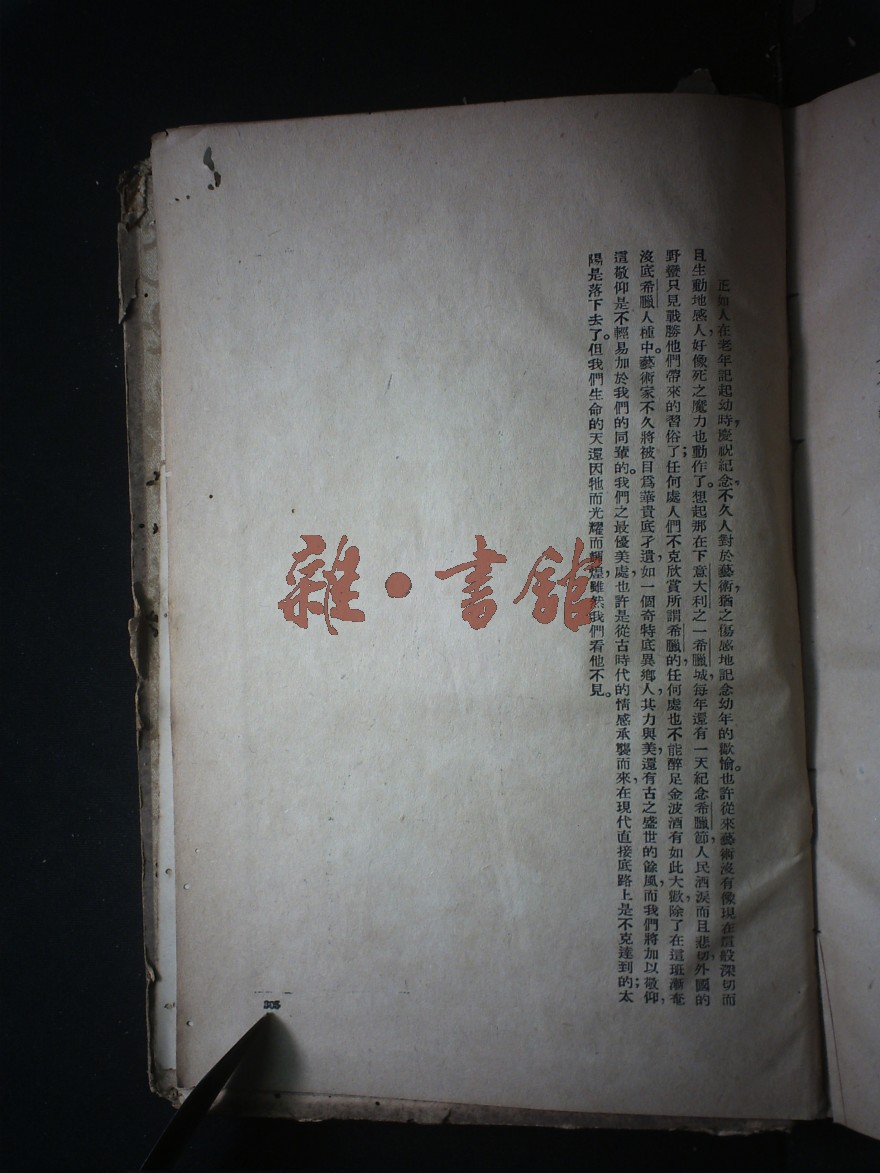 正如人在老年記起幼時,慶祝紀念,不久人對於藝術,猶之傷感地記念幼年的歡愉。也許從來藝術沒有像現在這般深切而
且生動地感人,好像死之魔力也動作了。想起那在下意大利之一希臘城,每年還有一天紀念希臘節,人民洒淚而且悲切,外國的
野蠻只見戰勝他們帶來的習俗了;任何處人們不克欣賞所謂希臘的,任何處也不能醉足金波酒有如此大歡,除了在這班漸在
沒底希臘人種中。藝術家不久將被目爲華貴底孑遺,如一個奇特底異鄉人,其力與美,還有古之盛世的餘風,而我們將加以敬仰,
這敬仰是不輕易加於我們的同輩的。我們之最優美處,也許是從古時代的情感承襲而來,在現代直接底路上是不克達到的;太
陽是落下去了。但我們生命的天還因牠而光耀而輝煌,雖然我們看他不見。
305
雜·書館